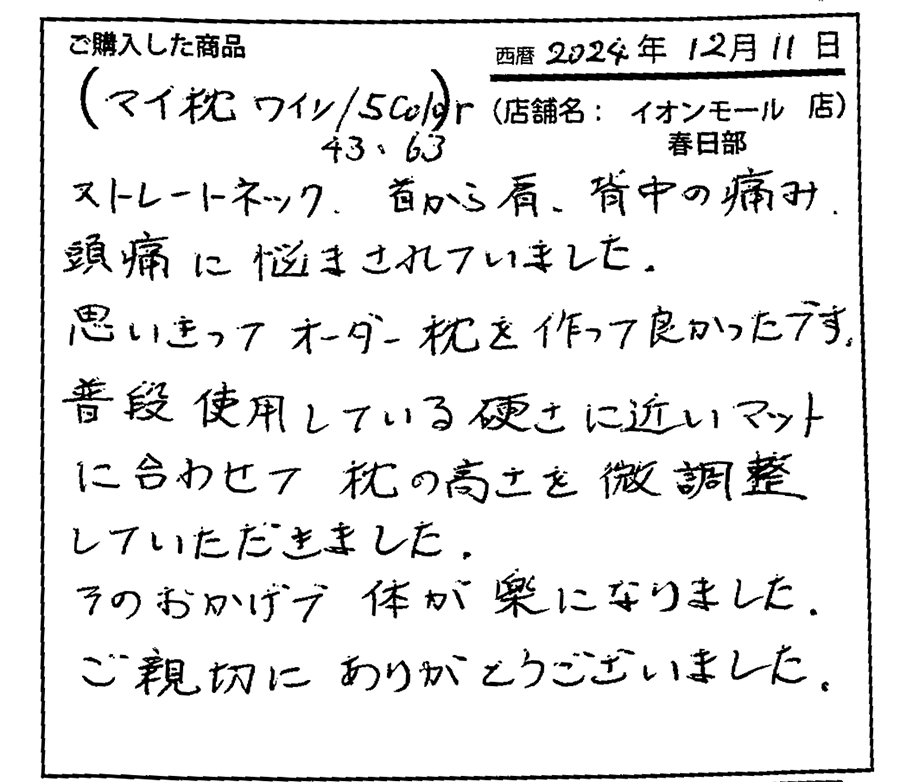 ご購入した商品
西暦 2024年 12月 11日
(マイ枕 ワイン/5Color)
43、63
(店舗名: イオンモール 店)
春日部
ストレートネック、首から肩、背中の痛み、
頭痛に悩まされていました。
思いきって オーダー枕を作って良かったです。
普段使用している硬さに近いマット
に合わせて 枕の高さを微調整
していただきました。
そのおかげで 体が楽になりました。
ご親切に ありがとうございました。